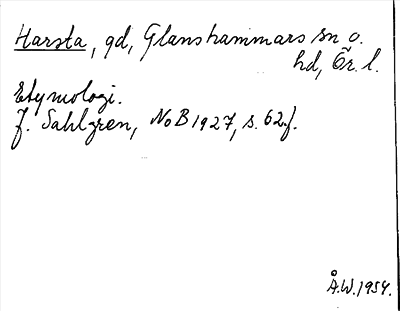 Harsta, gd, Glanshammars sn o.
hd, Ör. l.
Etymologi.
J. Sahlgren, NoB 1927, s. 62 f.
Å.W. 1954.